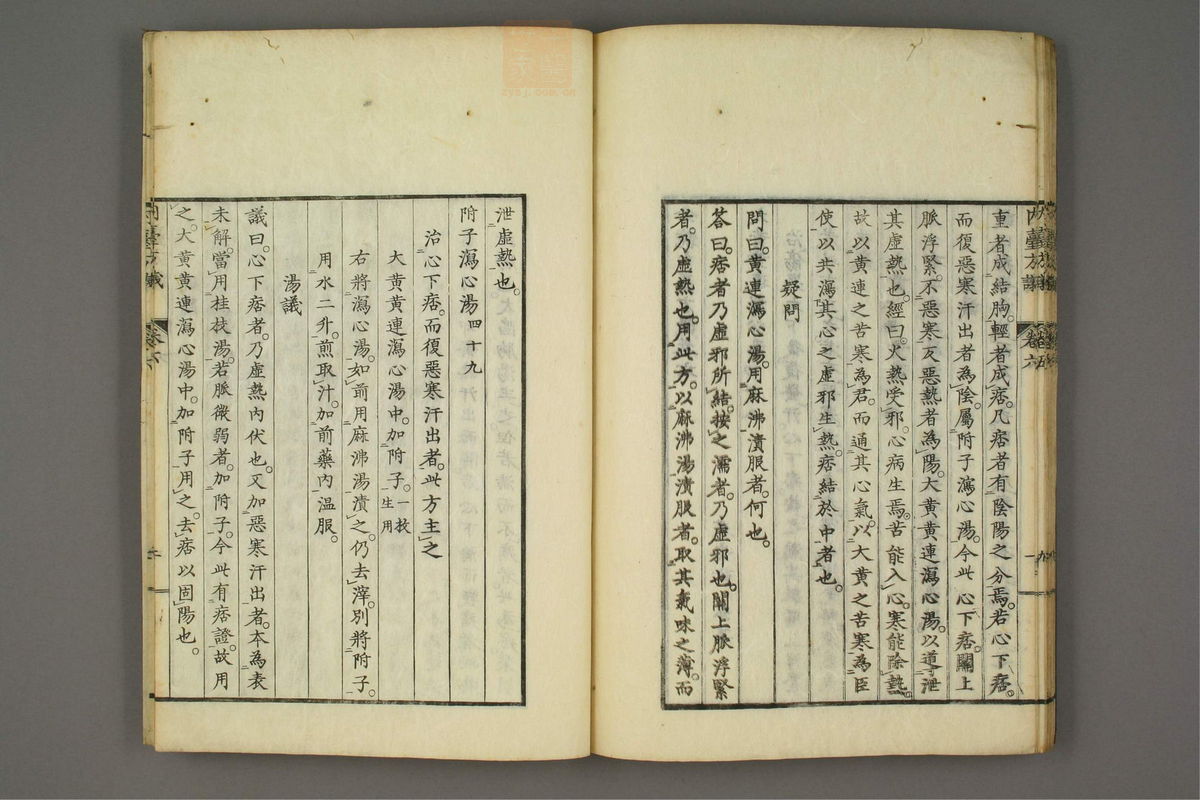 重者成結胸。輕者成痞。凡痞者有陰陽之分焉。若心下痞。
而復惡寒汗出者。為陰。屬附子瀉心湯。今此心下痞。關上
脈浮緊。不惡寒反惡熱者。為陽。大黃黃連瀉心湯。以導泄
其虛熱也。經曰。火熱受邪。心病生焉。苦能入心。寒能除熱。
故以黃連之苦寒為君。而通其心氣。以大黃之苦寒為臣
使。以共瀉其心之虛邪生熱。痞結於中者也。
疑問
問曰。黃連瀉心湯。用麻沸漬服者。何也。
荅曰。痞者乃虛邪所結。按之濡者。乃虛邪也。關上脈浮緊
者。乃虛熱也。用此方。以麻沸湯漬服者。取其氣味之薄。而
泄虛熱也。
附子瀉心湯四十九
治心下痞。而復惡寒汗出者。此方主之
大黃黃連瀉心湯中。加附子。一枚生用
右將瀉心湯。如前用麻沸湯漬之。仍去滓。別將附子。
用水二升。煎取汁。加前藥內溫服。
湯議
議曰。心下痞者。乃虛熱內伏也。又加惡寒汗出者。本為表
未解。當用桂枝湯。若脈微弱者。加附子。今此有痞證。故用
之。大黃黃連瀉心湯中。加附子用之。去痞以固陽也。
卷六